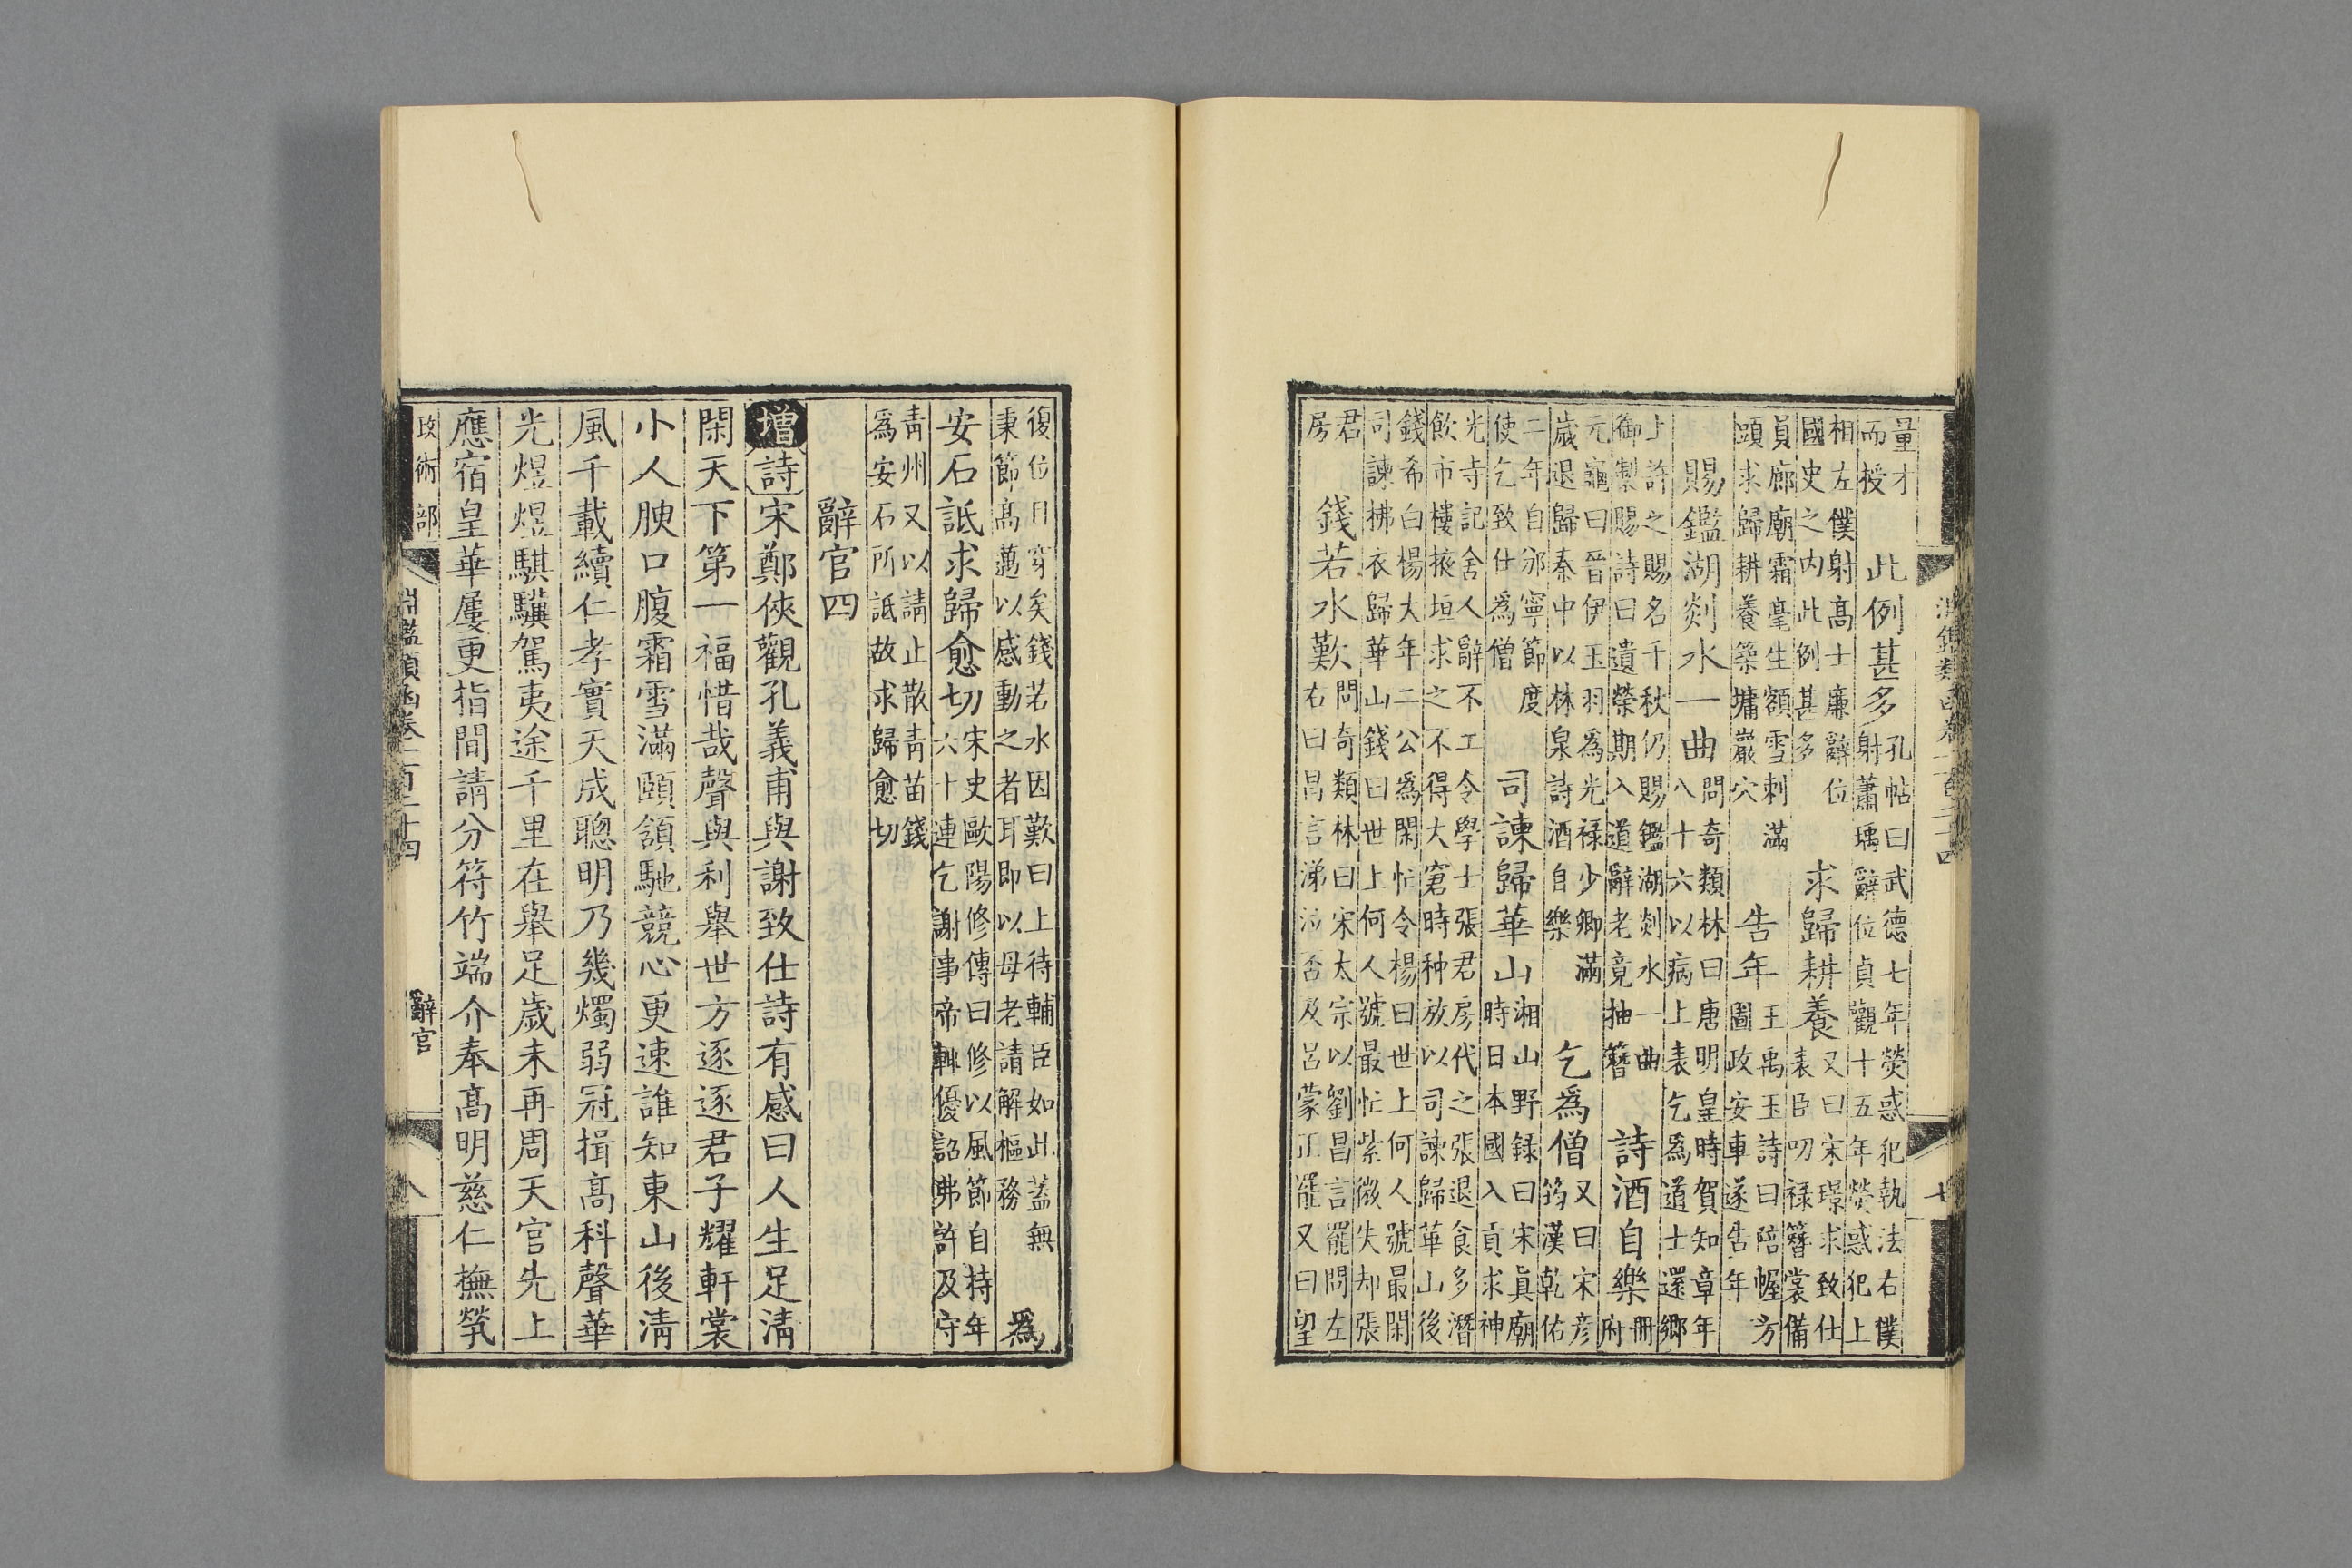 淵鑑類函卷一百二十四 七
量才
而授
此例甚多
孔帖曰武德七年熒惑犯執法右僕
射蕭瑀辭位貞觀十五年熒惑犯上
相左僕射高士廉辭位
國史之內此例甚多
求歸耕養
又曰宋璟求致仕
表臣叨祿簪裳備
員廊廟霜毫生額雪刺滿
頭求歸耕養築墉巖穴
告年
王禹玉詩曰陪幄方
圖政安車遂告年
賜鑑湖剡水一曲
問奇類林曰唐明皇時賀知章年
八十六以病上表乞爲道士還鄉
上許之賜名千秋仍賜鑑湖剡水一曲
御製賜詩曰遺榮期入道辭老竟抽簪
詩酒自樂
冊
府
元龜曰晉伊玉羽爲光祿少卿滿
歲退歸秦中以林泉詩酒自樂
乞爲僧
又曰宋彦
筠漢乾佑
二年自邠寧節度
使乞致仕爲僧
司諫歸華山
湘山野録曰宋眞廟
時日本國入貢求神
光寺記舍人辭不工令學士張君房代之張退食多潛
飲市樓掖垣求之不得大窘時种放以司諫歸華山後
錢希白楊大年二公爲閑忙令楊曰世上何人號最閑
司諫拂衣歸華山錢曰世上何人號最忙紫微失却張
君
房
錢若水歎
問奇類林曰宋太宗以劉昌言罷問左
右曰昌言涕泣否及呂蒙正罷又曰望
復位目穿矣錢若水因歎曰上待輔臣如此蓋無
秉節高邁以感動之者耳即以母老請解樞務
爲
安石詆求歸愈切
宋史歐陽修傳曰修以風節自持年
六十連乞謝事帝輒優詔弗許及守
青州又以請止散青苗錢
爲安石所詆故求歸愈切
辭官四
增詩宋鄭俠觀孔義甫與謝致仕詩有感曰人生足清
閑天下第一福惜哉聲與利舉世方逐逐君子耀軒裳
小人腴口腹霜雪滿頤頷馳競心更速誰知東山後清
風千載續仁孝實天成聰明乃幾燭弱冠揖高科聲華
光煜煜騏驥駕夷途千里在舉足歲未再周天官先上
應宿皇華屢更指間請分符竹端介奉高明慈仁撫煢
政術部 淵鑑類函卷一百二十四 辭官 八